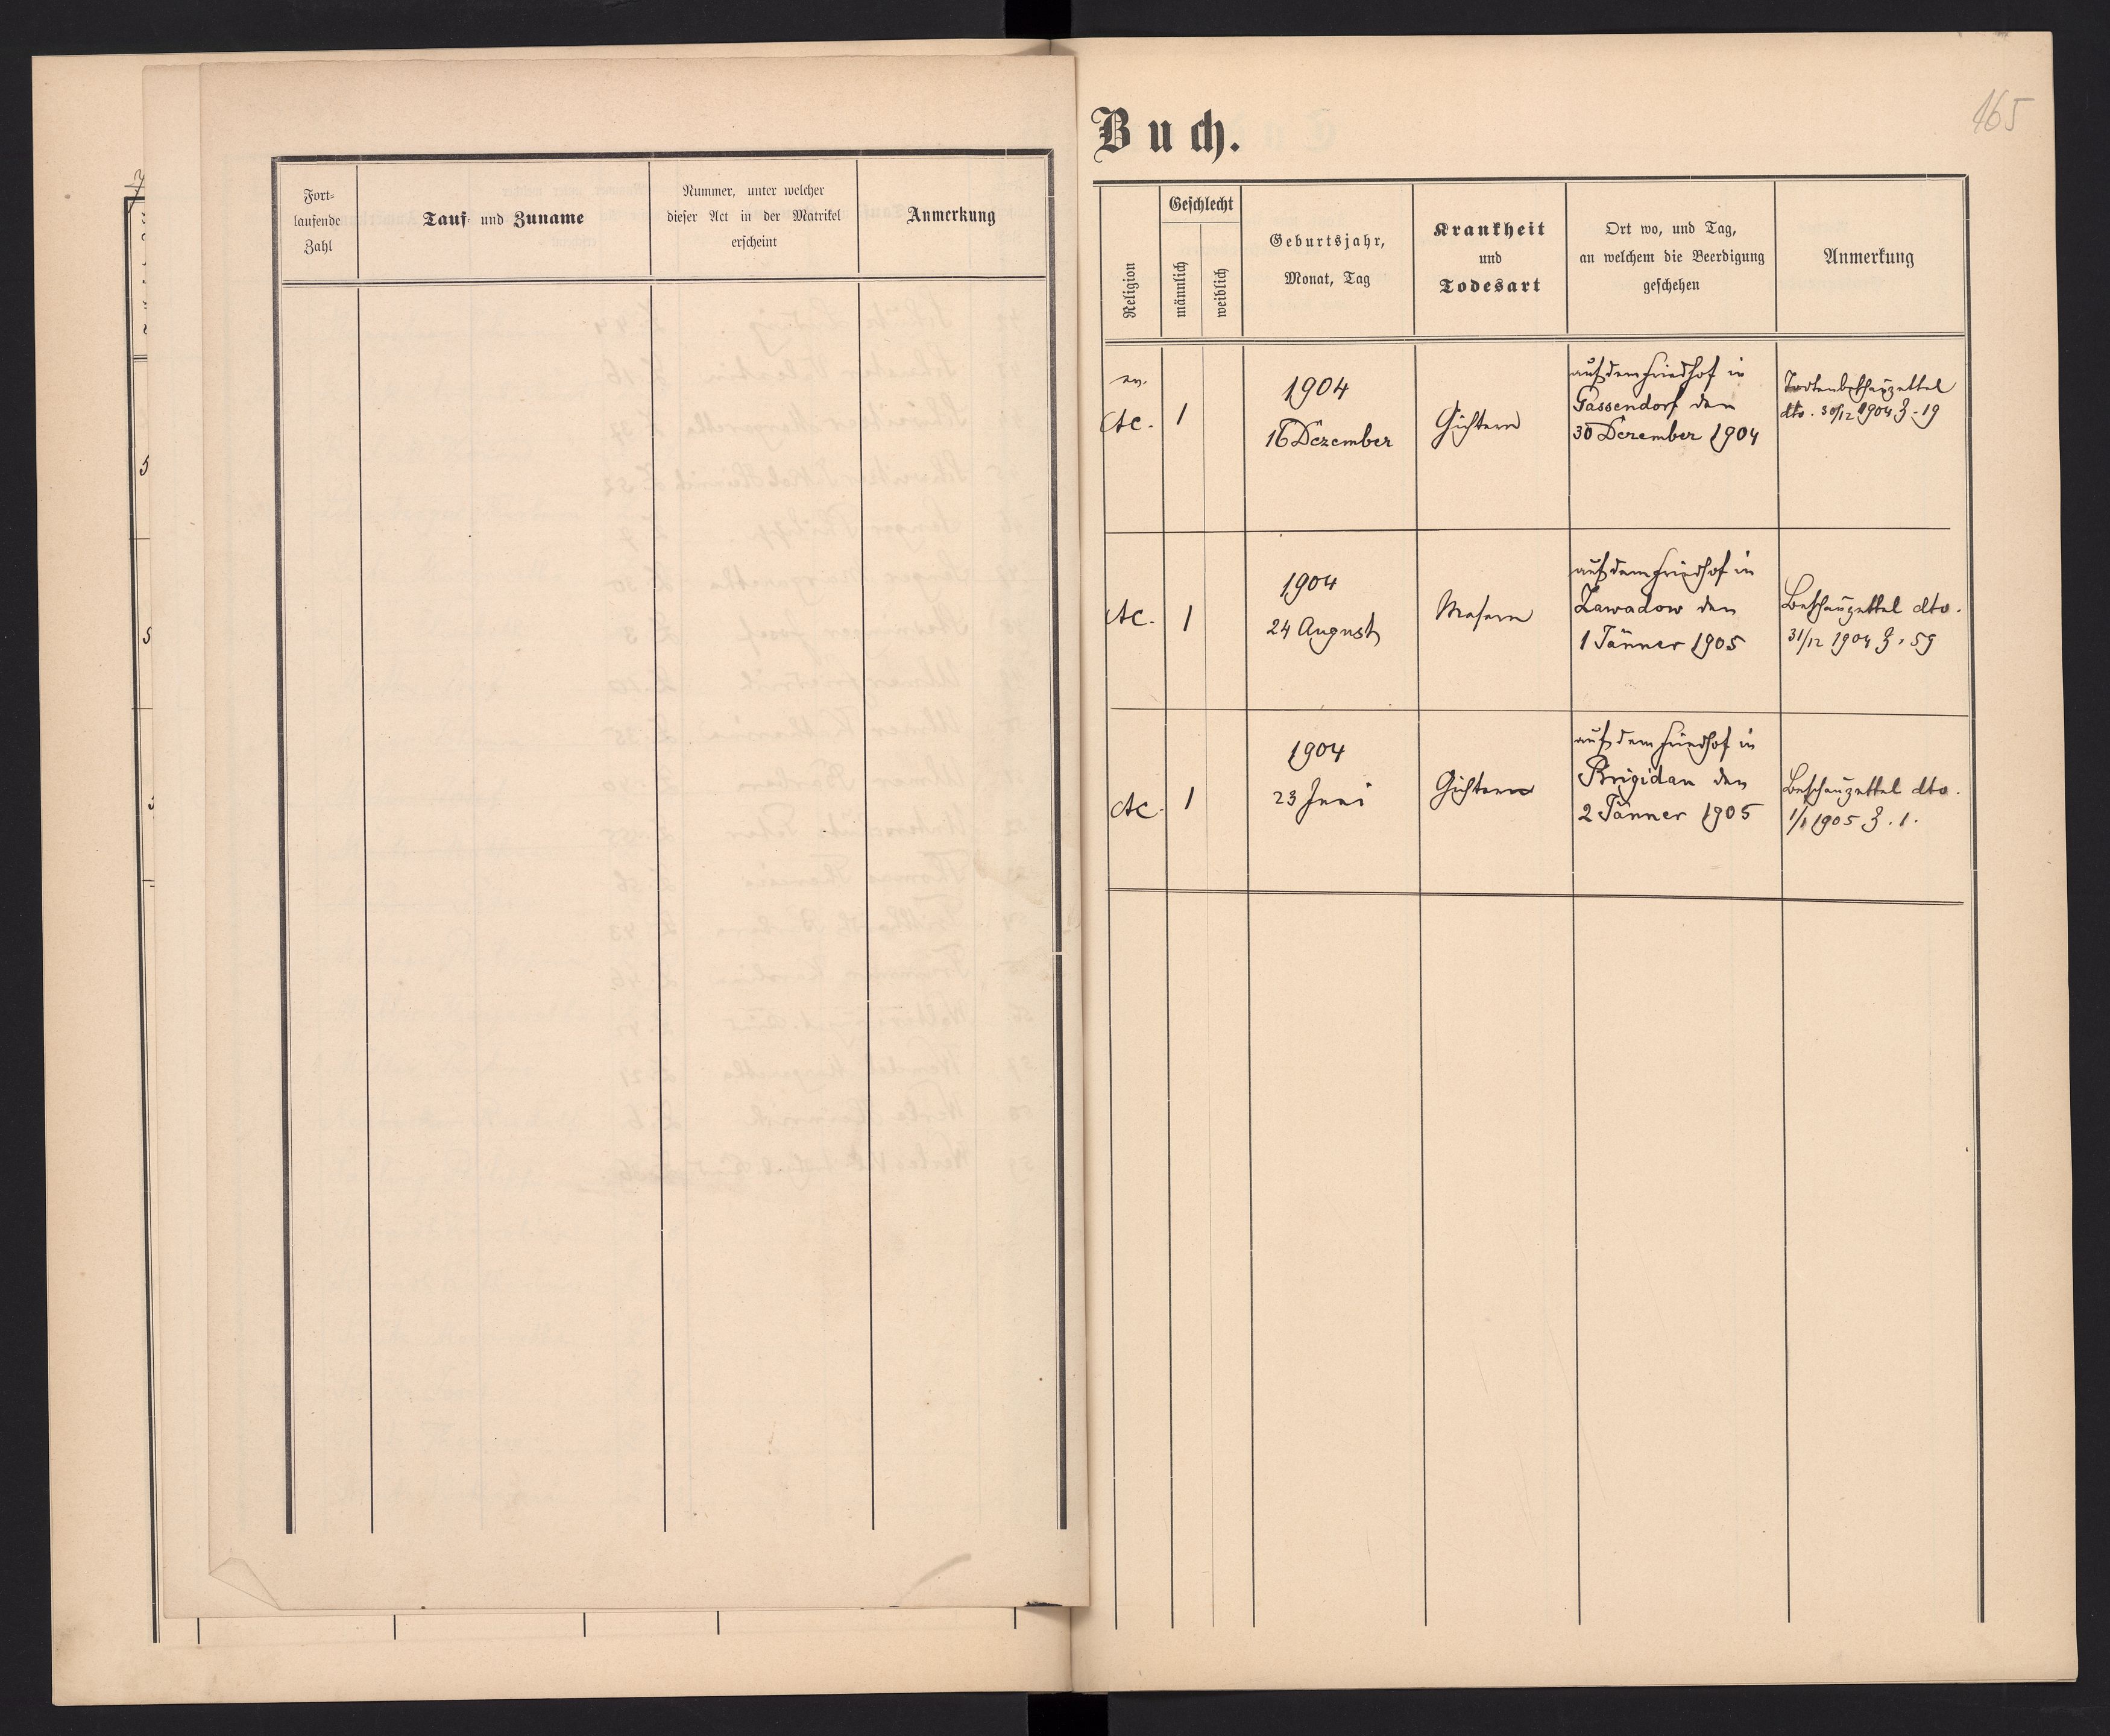 Fort-
laufende
Zahl
Tauf- und Zuname
Nummer, unter welcher
dieser Act in der Matrikel
erscheint
Anmerkung
165
Buch.
Religion
Geschlecht
männlich
weiblich
Geburtsjahr,
Monat, Tag
Krankheit
und
Todesart
Ort wo, und Tag,
an welchem die Beerdigung
geschehen
Anmerkung
ev.
AC.
1
1904
16 Dezember
Gichtern
auf dem Friedhof in
Gassendorf den
30 Dezember 1904
Todtenbeschauzettel
dto. 30/12 1904 Z. 19
AC.
1
1904
24 August
Masern
auf dem Friedhof in
Zawadow den
1 Jänner 1905
Beschauzettel dto.
31/12 1904 Z. 59
AC.
1
1904
23 Juni
Gichtern
auf dem Friedhof in
Brigidau den
2 Jänner 1905
Beschauzettel dto.
1/1 1905 Z. 1.